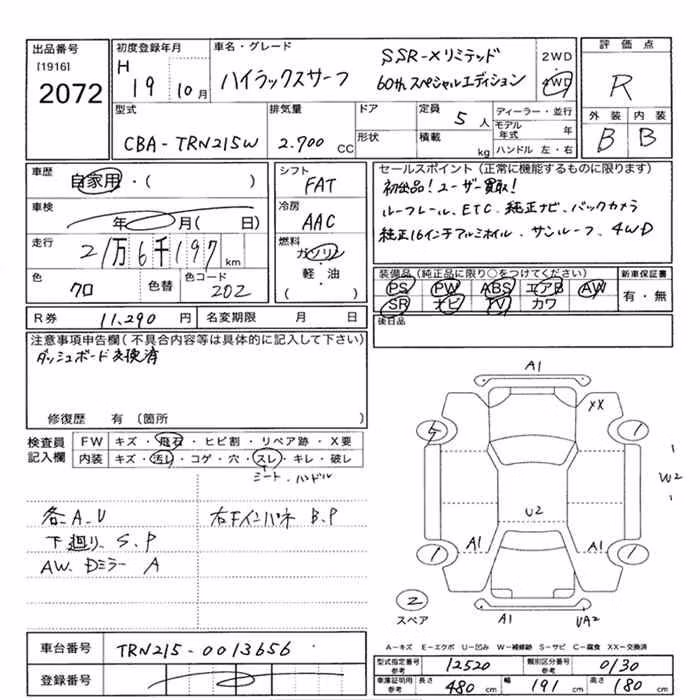 出品番号
[1916]
2072
初度登録年月
H
19 10月
車名・グレード
ハイラックスサーフ
SSR-Xリミテッド
60thスペシャルエディション
2WD
・
4WD
評価点
R
外装 内装
B B
型式
CBA-TRN215W
排気量
2.700 CC
ドア
形状
定員 5 人
積載 kg
ディーラー・並行
モデル年式 年
ハンドル 左・右
車歴
自家用・( )
車検
年 月( 日)
走行
21万6千197 km
色
クロ
色替
色コード
202
シフト
FAT
冷房
AAC
燃料
ガソリン
・
軽・油
( )
セールスポイント(正常に機能するものに限ります)
初出品!ユーザー買取!
ルーフレール、ETC、純正ナビ、バックカメラ
純正16インチアルミホイル、サンルーフ、4WD
装備品(純正品に限り○をつけてください)
PS PW ABS エアB AW
SR ナビ TV カワ
新車保証書
有・無
後日品
R券 11,290 円
名変期限 月 日
注意事項申告欄(不具合内容等は具体的に記入して下さい)
ダッシュボード交換済
修復歴 有〔箇所 〕
検査員
記入欄
FW キズ・飛石・ヒビ割・リペア跡・X要
内装 キズ・汚れ・コゲ・穴・スレ・キレ・破レ
シート・ハンドル
各A.U
下廻り、S.P
AW. Dミラー A
右下インパネ B.P
A1
XX
5
1
W2
U2
A1
A1
1
1
2
スペア
A1
UA2
A-キズ E-エクボ U-凹み W-補修跡 S-サビ C-腐食 XX-交換済
車台番号
TRN215-0013656
登録番号
型式指定番号 参考 12520
類別区分番号 参考 0130
車庫証明用 参考 長さ 480 cm 幅 191 cm 高さ 180 cm